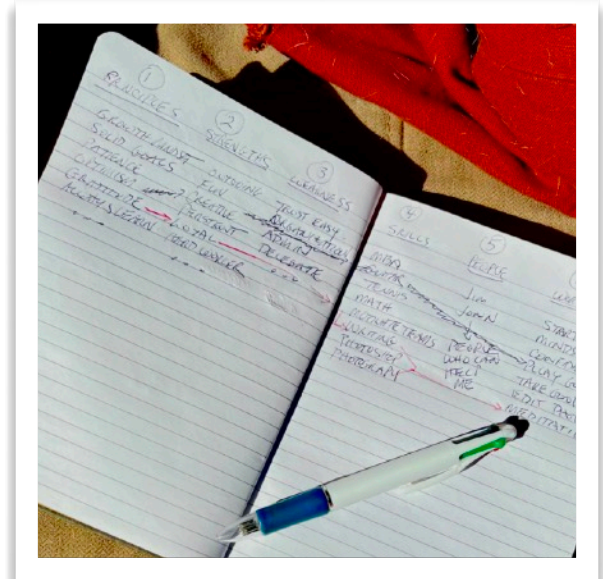 ①
PRINCIPLES
GROWTH MINDST
SOLID GOALS
PATIENCE
OPTIMISM
GRATITUDE
ALWAYS LEARN
....
②
STRENGTHS
OUTGOING
FUN
CREATIVE
PERSISTENT
LOYAL
GOOD COOKER
....
③
WEAKNESS
TRUST EASY
ORGANIZATION
ADMIN
DELEGATE
....
④
SKILLS
MBA
GUITAR
TENNIS
MATH
MOTIVATE TEAMS
WRITING
PHOTOSHOP
PHOTOGRAPHY
⑤
PEOPLE
Jim
JOHN
PEOPLE
WHO CAN
HELP
ME
START
MINDS
PLAY
TAKE
EDIT
MEDITATI